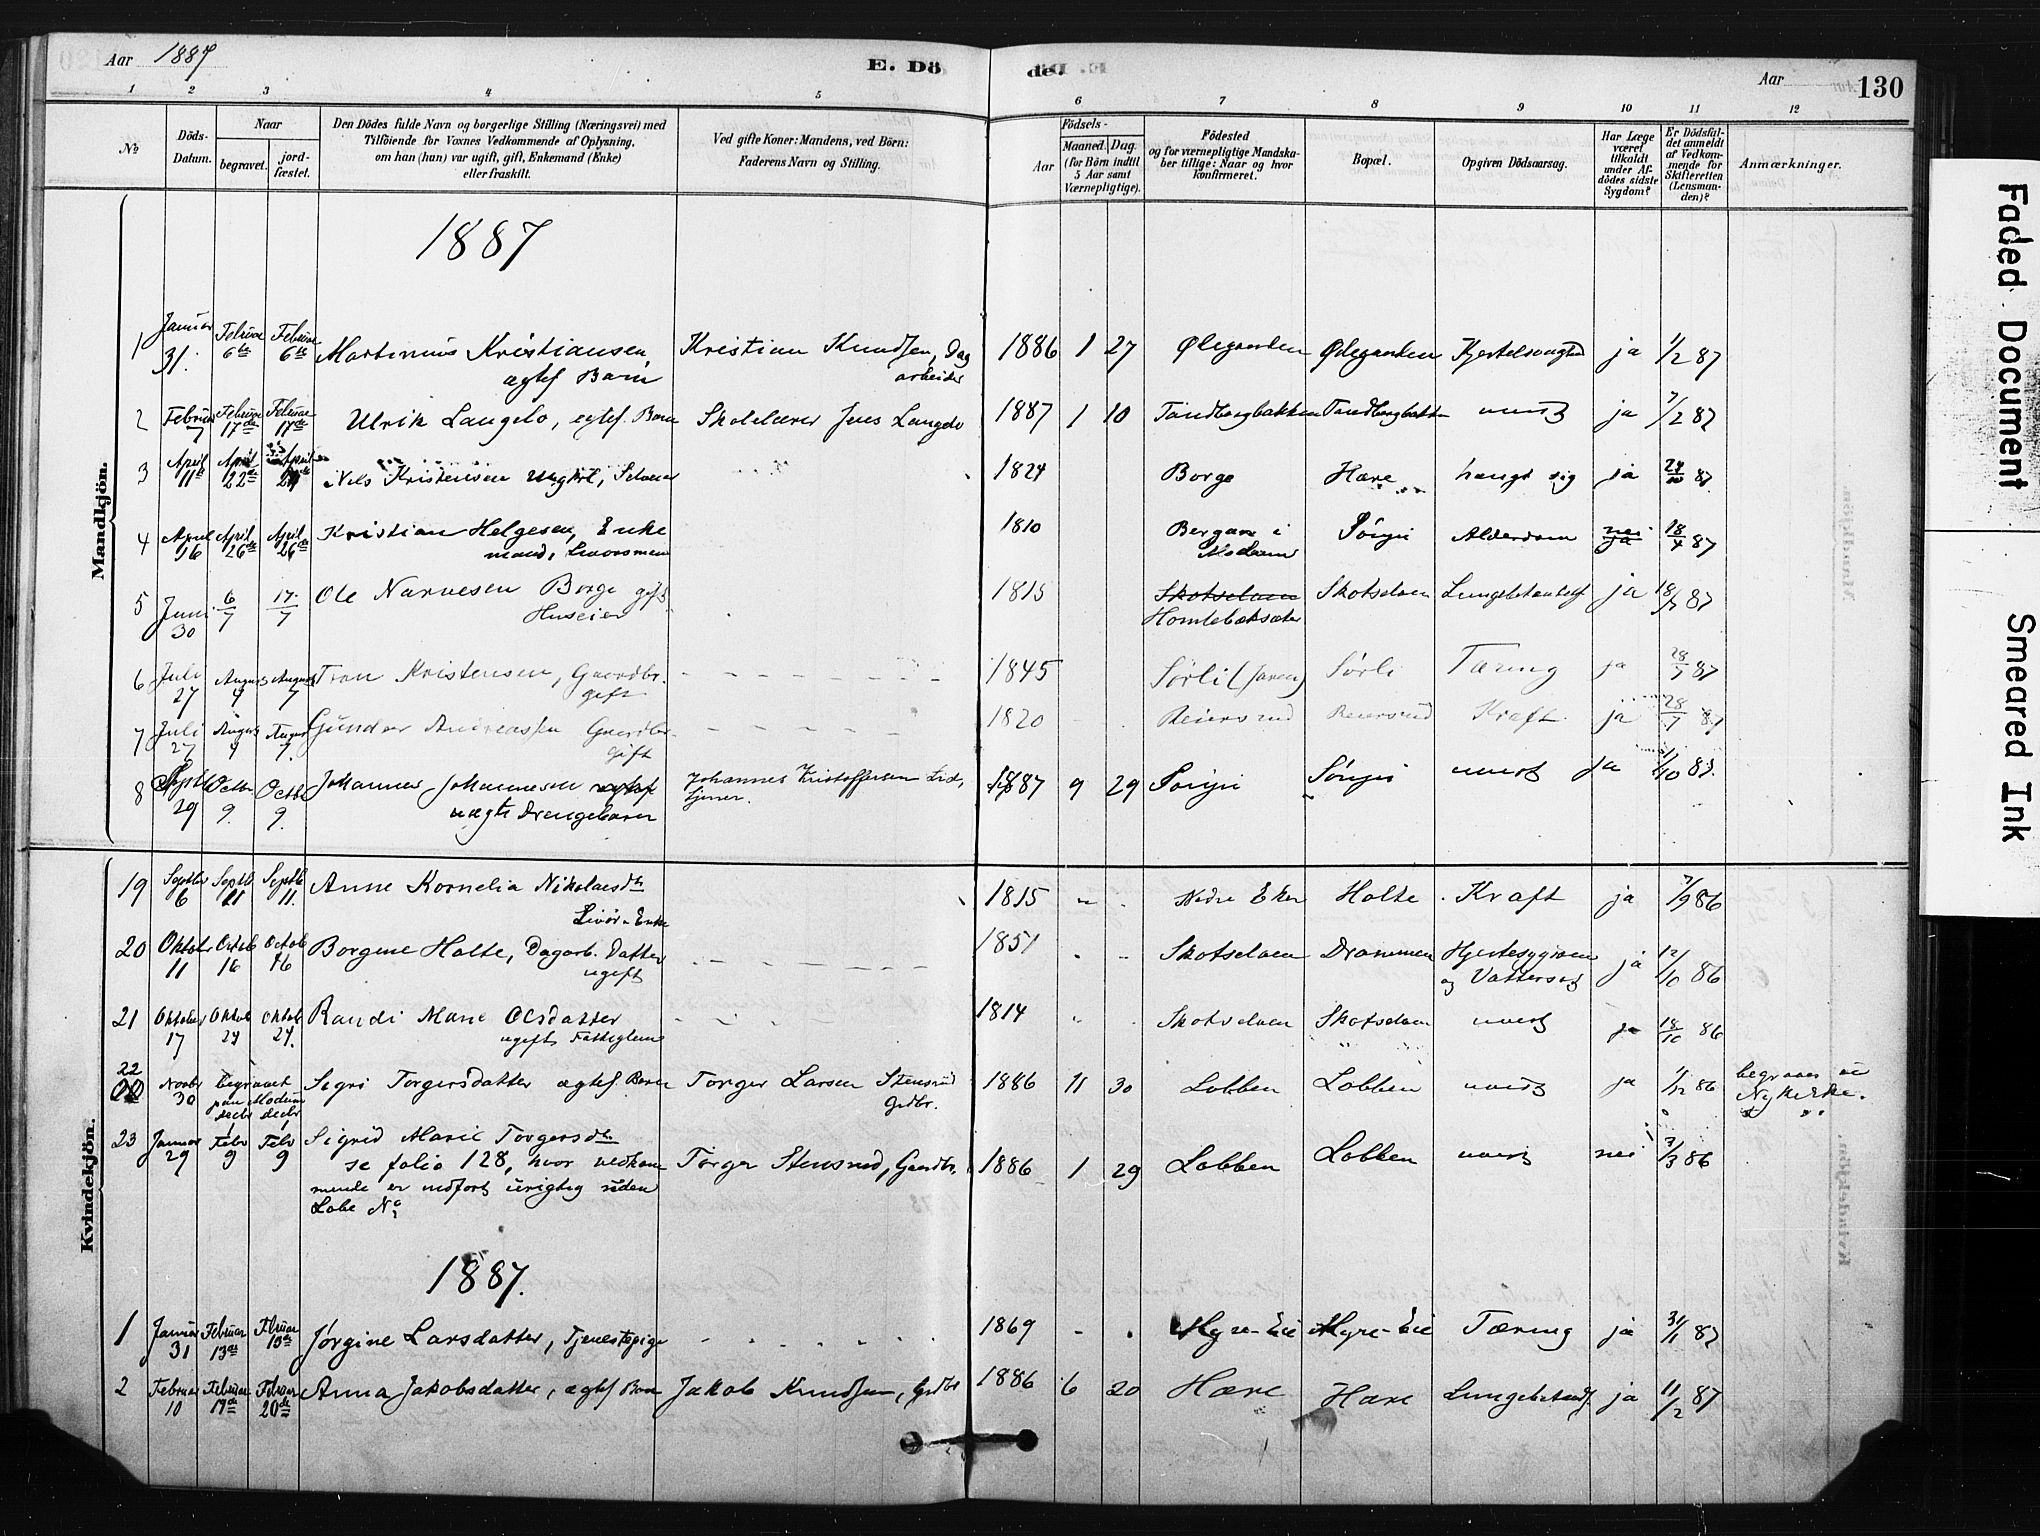 Aar 1887
E. Döde.
Aar
130
1 2 3 4 5 6 7 8 9 10 11 12
№
Döds-Datum.
Naar
begravet.
jordfæstet.
Den Dödes fulde Navn og borgerlige Stilling (Næringsvei) med
Tilföiende for Voxnes Vedkommende af Oplysning,
om han (hun) var ugift, gift, Enkemand (Enke)
eller fraskilt.
Ved gifte Koner: Mandens, ved Börn:
Faderens Navn og Stilling.
Födsels-
Aar
Maaned. Dag.
(for Börn indtil
5 Aar samt
Værnepligtige).
Födested
og for værnepligtige Mandska-
ber tillige: Naar og hvor
Konfirmeret.
Bopæl.
Opgiven Dödsaarsag.
Har Læge
været
tilkaldt
under Af-
dödes sidste
Sygdom?
Er Dödsfal-
det anmeldt
af Vedkom-
mende for
Skifteretten
(Lensman-
den)?
Anmærkninger.
Mandkjön.
1887
1 Januar 31. Februar 6te Februar 6te Martinius Kristiansen, ægtef Barn Kristian Knudsen, Dagarbeider 1886 1 27 Ølegarden Ølegarden ja 1/2 87
2 Februar 7 Februar 17de Februar 17de Ulrik Langelo, egtef. Barn Skolelærer Jens Langelo 1887 1 10 Tandbergbakken Tandbergbakk uvist ja 7/2 87
3 April 11te April 22de April Nels Kristensen Ungkrl, 1824 Borge Hære hængt sig ja 87
4 April 16 April 26de April 26de Kristian Helgesen, Enke
mand, 1810 Bergan i
Modum Sönju Alderdom nei ja 18/4 87
5 Juni 30 6/7 17/7 Ole Narvesen Borge gift
Huseier 1815 Skotselven
Homlebæksæter Skotselven Lungebetændelse ja 18/7 87
6 Juli 27 August 7 August 7 Tron Kristensen, Gaardbr.
gift 1845 Sörli Sörli Tæring ja 28/7 87
7 Juli 27 August 7 August 7. Gunder Andreassen Gaardbr
gift 1820 Reiersrud Reiersrud Kræft ja 28/7 87
8 Septb 29 Octbr 9. Octbr 9. Johannes Johannesen
uægte Drengebarn Johannes Kristoffersen 1887 9 29 Sönju Sönju uvist ja 1/10 87.
Kvindekjön.
19 Septbr 6 Septb 11 Septb 11. Anne Kornelia Nikolaisdtr
Enke 1815 Nedre Eker Holte Kræft ja 7/9 86
20 Oktobr 11 Octob 16 Octob 16 Borgine Holte, Dagarb. Datter
ugift 1851 Skotselven Drammen Hjertesygdom
og Vattersot ja 12/10 86
21 Oktober 17 Oktob 24 Oktob 24. Randi Marie Olsdatter
ugift Fattiglem 1814 Skotselven Skotselven uvist ja 18/10 86
22 Novbr 30 begravet
paa Modum
decbr decbr Segri Torgersdatter ægtef. Barn Torger Larsen Stensrud
Grdbr. 1886 11 30 Lobben Lobben uvist ja 1/12 86 begraves ve
Nykirke.
23 Januar 29 Febr 9 Febr 9 Sigrid Marie Torgersdtr
se folio 128, hvor vedkom
mende er indfört urigtig uden
Lobe No Torger Stensrud, Gaardbr. 1886 1 29 Lobben Lobben uvist nei 3/3 86
1887.
1 Januar 31 Februar 13de Februar 13de Jörgine Larsdatter, Tjenestepige 1869 Myre-Eie Myre-Eie Tæring ja 31/1 87
2 Februar 10 Februar Februar 20de Anna Jakobsdatter, ægtef Barn Jakob Knudsen, Grdbr 1886 6 20 Hære Hære Lungebetænd. ja 11/2 87
Faded Document
Smeared Ink